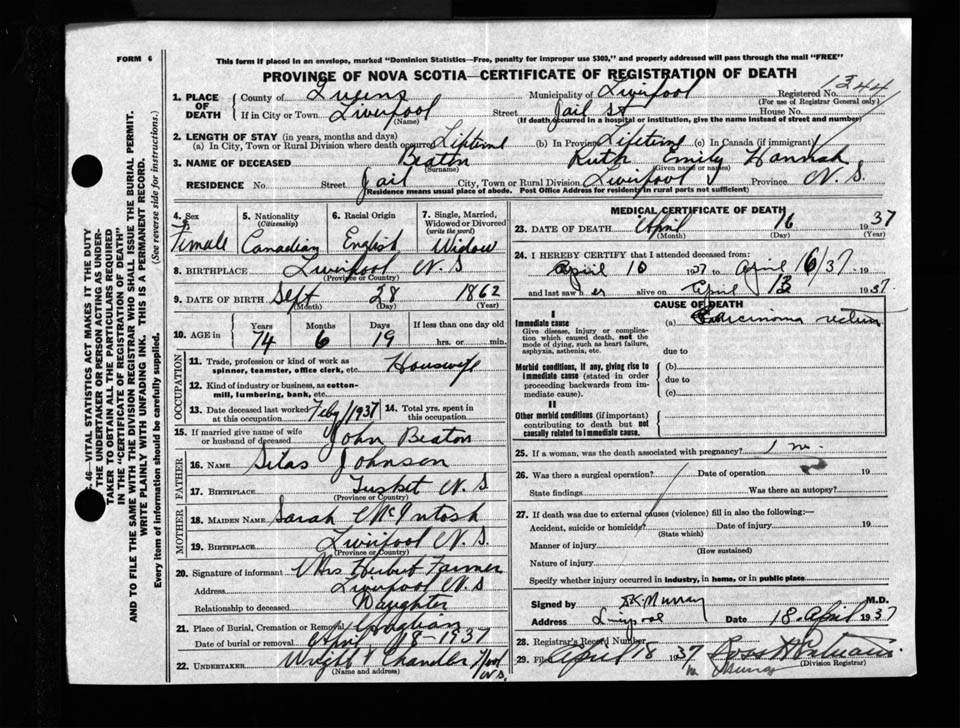 FORM 6
This form if placed in an envelope, marked "Dominion Statistics—Free, penalty for improper use $300," and properly addressed will pass through the mail "FREE"
PROVINCE OF NOVA SCOTIA—CERTIFICATE OF REGISTRATION OF DEATH
1344
1. PLACE OF DEATH County of Queens Municipality of Liverpool Registered No.
(For use of Registrar General only)
If in City or Town Liverpool Street Jail St House No.
(Name) (If death occurred in a hospital or institution, give the name instead of street and number)
2. LENGTH OF STAY (in years, months and days)
(a) In City, Town or Rural Division where death occurred Lifetime (b) In Province Lifetime (c) In Canada (if immigrant)
3. NAME OF DECEASED Beaton Ruth Emily Hannah
(Surname) (Given name or names)
RESIDENCE No. Street Jail City, Town or Rural Division Liverpool Province N. S.
(Residence means usual place of abode. Post Office Address for residents in rural parts not sufficient)
4. Sex Female
5. Nationality (Citizenship) Canadian
6. Racial Origin English
7. Single, Married, Widowed or Divorced (write the word) Widow
8. BIRTHPLACE Liverpool N. S
(Province or Country)
9. DATE OF BIRTH Sept 28 1862
(Month) (Day) (Year)
10. AGE in Years 74 Months 6 Days 19 If less than one day old hrs. or min.
OCCUPATION
11. Trade, profession or kind of work as spinner, teamster, office clerk, etc. Houswife
12. Kind of industry or business, as cotton-mill, lumbering, bank, etc.
13. Date deceased last worked at this occupation Feby/1937 14. Total yrs. spent in this occupation
15. If married give name of wife or husband of deceased John Beaton
FATHER
16. NAME Silas Johnson
17. BIRTHPLACE Tusket N. S
(Province or Country)
MOTHER
18. MAIDEN NAME Sarah McIntosh
19. BIRTHPLACE Liverpool N. S.
(Province or Country)
20. Signature of informant Mrs Herbert Farmer
Address Liverpool N. S
Relationship to deceased Daughter
21. Place of Burial, Cremation or Removal
Date of burial or removal April 18-1937
22. UNDERTAKER Wright & Chandler
(Name and address)
MEDICAL CERTIFICATE OF DEATH
23. DATE OF DEATH April 16 1937
(Month) (Day) (Year)
24. I HEREBY CERTIFY that I attended deceased from:
April 10 1937 to April 16/37. 19
and last saw her alive on April 13 1937.
CAUSE OF DEATH
I
Immediate cause (a) Carcinoma rectum
Give disease, injury or complication which caused death, not the mode of dying, such as heart failure, asphyxia, asthenia, etc.
due to
Morbid conditions, if any, giving rise to immediate cause (stated in order proceeding backwards from immediate cause).
(b)
due to
(c)
II
Other morbid conditions (if important) contributing to death but not causally related to immediate cause.
25. If a woman, was the death associated with pregnancy?
26. Was there a surgical operation? Date of operation 19
State findings Was there an autopsy?
27. If death was due to external causes (violence) fill in also the following:—
Accident, suicide or homicide? Date of injury 19
(State which)
Manner of injury
(How sustained)
Nature of injury
Specify whether injury occurred in industry, in home, or in public place
Signed by Murray M.D.
Address Liverpool Date 18. April 1937
28. Registrar's Record Number
29. Filed April 18 1937
(Division Registrar)
46—VITAL STATISTICS ACT MAKES IT THE DUTY
THE UNDERTAKER OR PERSON ACTING AS UNDER-
TAKER TO OBTAIN ALL THE PARTICULARS REQUIRED
IN THE "CERTIFICATE OF REGISTRATION OF DEATH"
AND TO FILE THE SAME WITH THE DIVISION REGISTRAR WHO SHALL ISSUE THE BURIAL PERMIT.
WRITE PLAINLY WITH UNFADING INK. THIS IS A PERMANENT RECORD.
Every item of information should be carefully supplied. (See reverse side for instructions.)